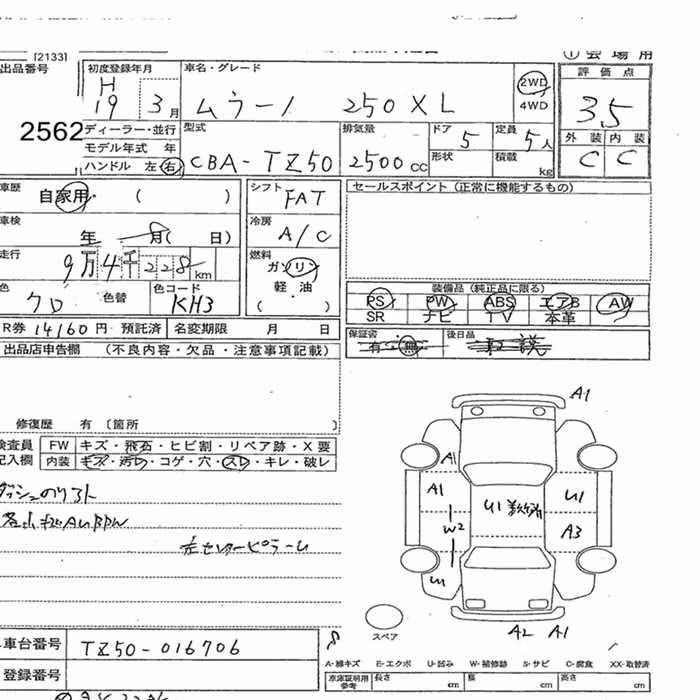 [2133]
① 会場用
出品番号
2562
初度登録年月
H
19 3月
車名・グレード
ムラーノ 250XL
2WD
4WD
評価点
3.5
外装 内装
C C
ディーラー・並行
モデル年式 年
ハンドル 左 右
型式
CBA-TZ50
排気量
2500cc
ドア 5
形状
定員 5人
積載 kg
車歴
自家用・ ( )
車検
年 月( 日)
走行
9万4千228km
色
クロ
色替
色コード
KH3
シフト
FAT
冷房
A/C
燃料
ガソリン
軽・油
( )
セールスポイント (正常に機能するもの)
装備品 (純正品に限る)
PS PW ABS エアB AW
SR ナビ TV 本革
R券 14160円 預託済
名変期限 月 日
保証書
有・無
後日品
取説
出品店申告欄 (不良内容・欠品・注意事項記載)
修復歴 有 〔箇所 〕
検査員
記入欄
FW キズ・飛石・ヒビ割・リペア跡・X要
内装 キズ・汚レ・コゲ・穴・スレ・キレ・破レ
左センターピラーU
A1
A1
A1
U1
U1
W2
A3
A2 A1
スペア
車台番号
TZ50-016706
登録番号
A-線キズ E-エクボ U-凹み W-補修跡 S-サビ C-腐食 XX-取替済
車庫証明用
参考
長さ cm
幅 cm
高さ cm